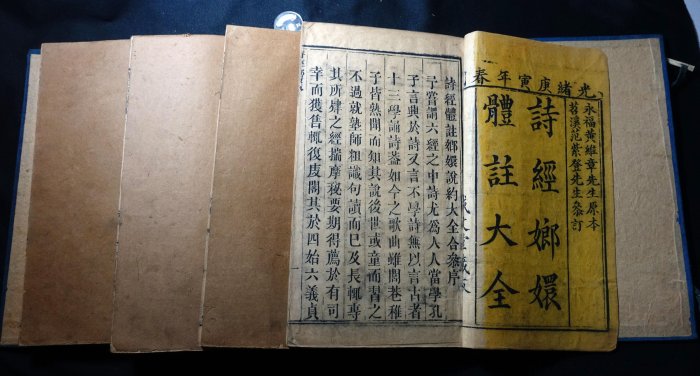 光緒庚寅年春
永福黃維章先生原本
苕溪范紫登先生叅訂
詩經嫏嬛
體註大全
詩經體註嫏嬛說約大全合叅序
予嘗謂六經之中詩尤為人人當學孔
子言興於詩又言不學詩無以言古者
十三學誦詩蓋如今之歌曲雖閭巷稚
子皆熟聞而知其說後世或童而習之
不過就塾師粗識句讀而已及長輒專
其所肄之經揣摩秘要期得薦於有司
幸而獲售輒復庋閣其於四始六義貞